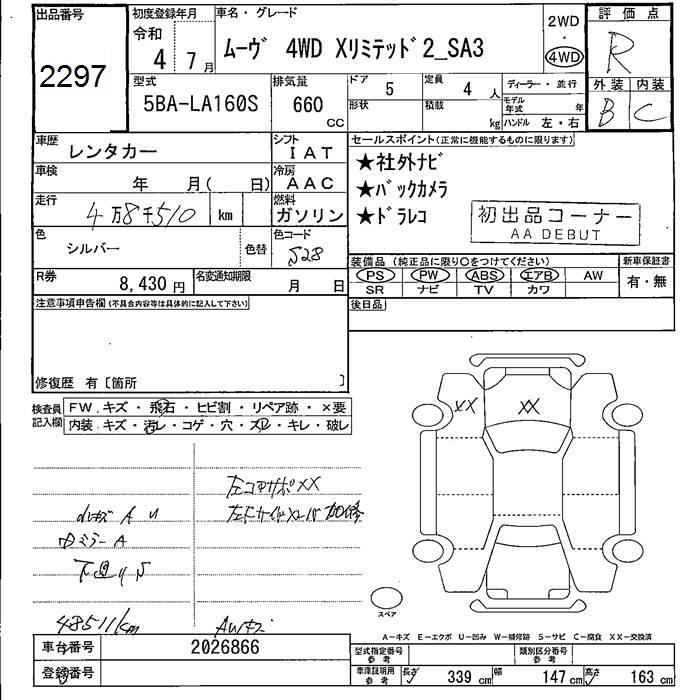 出品番号
2297
初度登録年月
令和
4 7月
車名・グレード
ムーヴ 4WD Xリミテッド2_SA3
2WD
・
4WD
評価点
R
外装 内装
B C
型式
5BA-LA160S
排気量
660
CC
ドア 5
定員 4 人
形状
積載 kg
ディーラー・並行
モデル年式 年
ハンドル 左・右
車歴
レンタカー
シフト
IAT
車検
年 月( 日)
冷房
AAC
走行
4万8千510 km
燃料
ガソリン
色
シルバー
色替
色コード
S28
R券
8,430 円
名変通知期限
月 日
セールスポイント(正常に機能するものに限ります)
★社外ナビ
★バックカメラ
★ドラレコ
初出品コーナー
AA DEBUT
装備品 (純正品に限り○をつけてください)
PS PW ABS エアB AW
SR ナビ TV カワ
新車保証書
有・無
後日品
注意事項申告欄(不具合内容等は具体的に記入して下さい)
修復歴 有〔箇所 〕
検査員記入欄
FW.キズ・飛石・ヒビ割・リペア跡・×要
内装.キズ・汚レ・コゲ・穴・スレ・キレ・破レ
XX
XX
左コアサポXX
小キズ A U
内ミラーA
下廻りS
48511km
AWキズ
スペア
A-キズ E-エクボ U-凹み W-補修跡 S-サビ C-腐食 XX-交換済
車台番号
2026866
登録番号
型式指定番号
参考
類別区分番号
参考
車庫証明用
参考
長さ 339 cm
幅 147 cm
高さ 163 cm